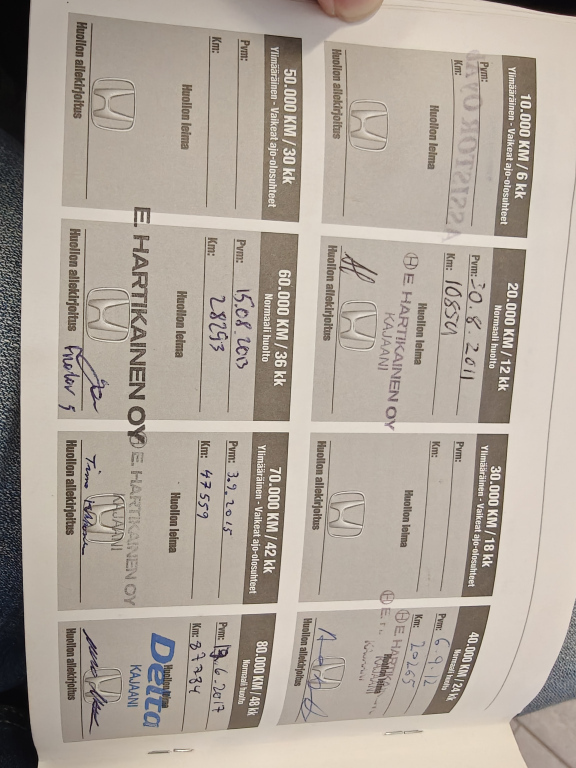 10.000 KM / 6 kk
Ylimääräinen - Vaikeat ajo-olosuhteet
Pvm:
Km:
Huollon leima
Huollon allekirjoitus
20.000 KM / 12 kk
Normaali huolto
Pvm: 30.8.2011
Km: 10854
Huollon leima
E. HARTIKAINEN OY
KAJAANI
Huollon allekirjoitus
30.000 KM / 18 kk
Ylimääräinen - Vaikeat ajo-olosuhteet
Pvm:
Km:
Huollon leima
Huollon allekirjoitus
40.000 KM / 24 kk
Normaali huolto
Pvm: 6.9.12
Km: 20265
E. HARTIKAINEN
KAJAANI
Huollon allekirjoitus
50.000 KM / 30 kk
Ylimääräinen - Vaikeat ajo-olosuhteet
Pvm:
Km:
Huollon leima
Huollon allekirjoitus
60.000 KM / 36 kk
Normaali huolto
Pvm: 15.08.2013
Km: 28293
Huollon leima
E. HARTIKAINEN OY
Huollon allekirjoitus
70.000 KM / 42 kk
Ylimääräinen - Vaikeat ajo-olosuhteet
Pvm: 3.9.2015
Km: 47559
Huollon leima
E. HARTIKAINEN OY
KAJAANI
Huollon allekirjoitus
80.000 KM / 48 kk
Normaali huolto
Pvm: 6.2017
Km: 87784
Huollon leima
Delta
KAJAANI
Huollon allekirjoitus